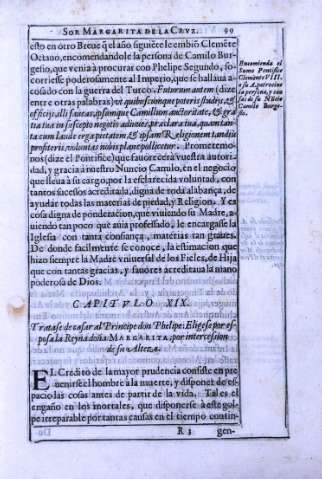 SOR MARGARITA DE LA CRVZ. 99
esto en otro Breue q̃ el año siguiẽte le embiò Clemẽte
Octauo, encomendandole la persona de Camilo Bur-
gesio, que venia à procurar con Phelipe Segundo, so-
corriesse poderosamente al Imperio, que se hallaua a-
cosado con la guerra del Turco. Futurum autem (dize
entre otras palabras) vt quibuscunque poteris studijs, &
officijs, alli faueas, ipsumque Camillum auctoritate, & gra-
tia tua in suscepto negotio adiuues, præclara tua, quam tan-
ta cum laude erga pietatem & ipsam Religionem tandiu
profiteris, voluntas nobis plane pollicetur. Prometemo-
nos (dize el Pontifice) que fauorecerà vuestra autori-
dad, y gracia a nuestro Nuncio Camilo, en el negocio
que lleua à su cargo, por la esclarecida voluntad, con
tantos sucessos acreditada, digna de toda alabança, de
ayudar todas las materias de piedad, y Religion. Y es
cosa digna de ponderacion, que viuiendo su Madre, a-
uiendo tan poco que auia professado, le encargasse la
Iglesia con tanta confiança, materias tan graues.
De donde facilmente se conoce, la estimacion que
hizo siempre la Madre vniuersal de los Fieles, de Hija
que con tantas gracias, y fauores acreditaua la mano
poderosa de Dios.
CAPITVLO XIX.
Tratase de casar al Principe don Phelipe: Eligese por es-
posa la Reyna doña MARGARITA, por intercession
de su Alteza.
EL Crèdito de la mayor prudencia consiste en pre-
uenirse el hombre a la muerte, y disponer de es-
pacio las cosas antes de partir de la vida. Tal es el
engaño en los mortales, que disponerse à este gol-
pe irreparable por tantas causas en el tiempo contin-
R 3 gen-
Encomienda el
Sumo Pontifice
Clemente VIII.
a su A. patrocine
la persona, y cau-
sas de su Nũcio
Camilo Burge-
sio.